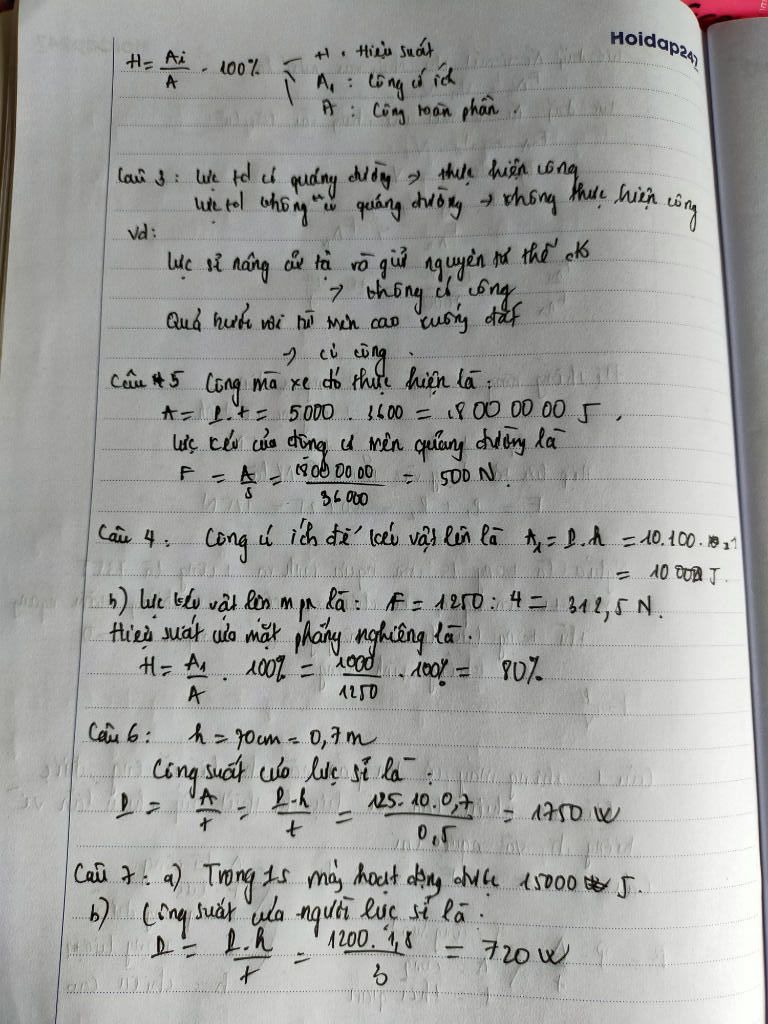 Hoidap247
H = Ai/A . 100% H : Hiệu suất
A1 : Công có ích
A : Công toàn phần .
Câu 3 : Lực td có quãng đường → thực hiện công
Lực td không có quãng đường → không thực hiện công
Vd:
Lực sĩ nâng quả tạ và giữ nguyên tư thế
→ không có công
Quả bưởi rơi từ trên cao xuống đất
→ có công .
Câu 5 Công mà xe đó thực hiện là :
A = P.t = 5000 . 3600 = 18000000 J .
Lực kéo của động cơ trên quãng đường là
F = A/s = 18000000/36000 = 500 N .
Câu 4 : Công có ích để kéo vật lên là A1 = P.h = 10.100.1
= 1000 J.
b) Lực kéo vật lên mpn là : F = 1250 : 4 = 312,5 N.
Hiệu suất của mặt phẳng nghiêng là .
H = A1/A . 100% = 1000/1250 . 100% = 80%
Câu 6 : h = 70cm = 0,7m
Công suất của lực sĩ là :
P = A/t = P.h/t = 125.10.0,7/0,5 = 1750 W
Câu 7 : a) Trong 1s máy hoạt động được 15000 J.
b) Công suất của người lực sĩ là .
P = P.h/t = 1200.1,8/3 = 720 W